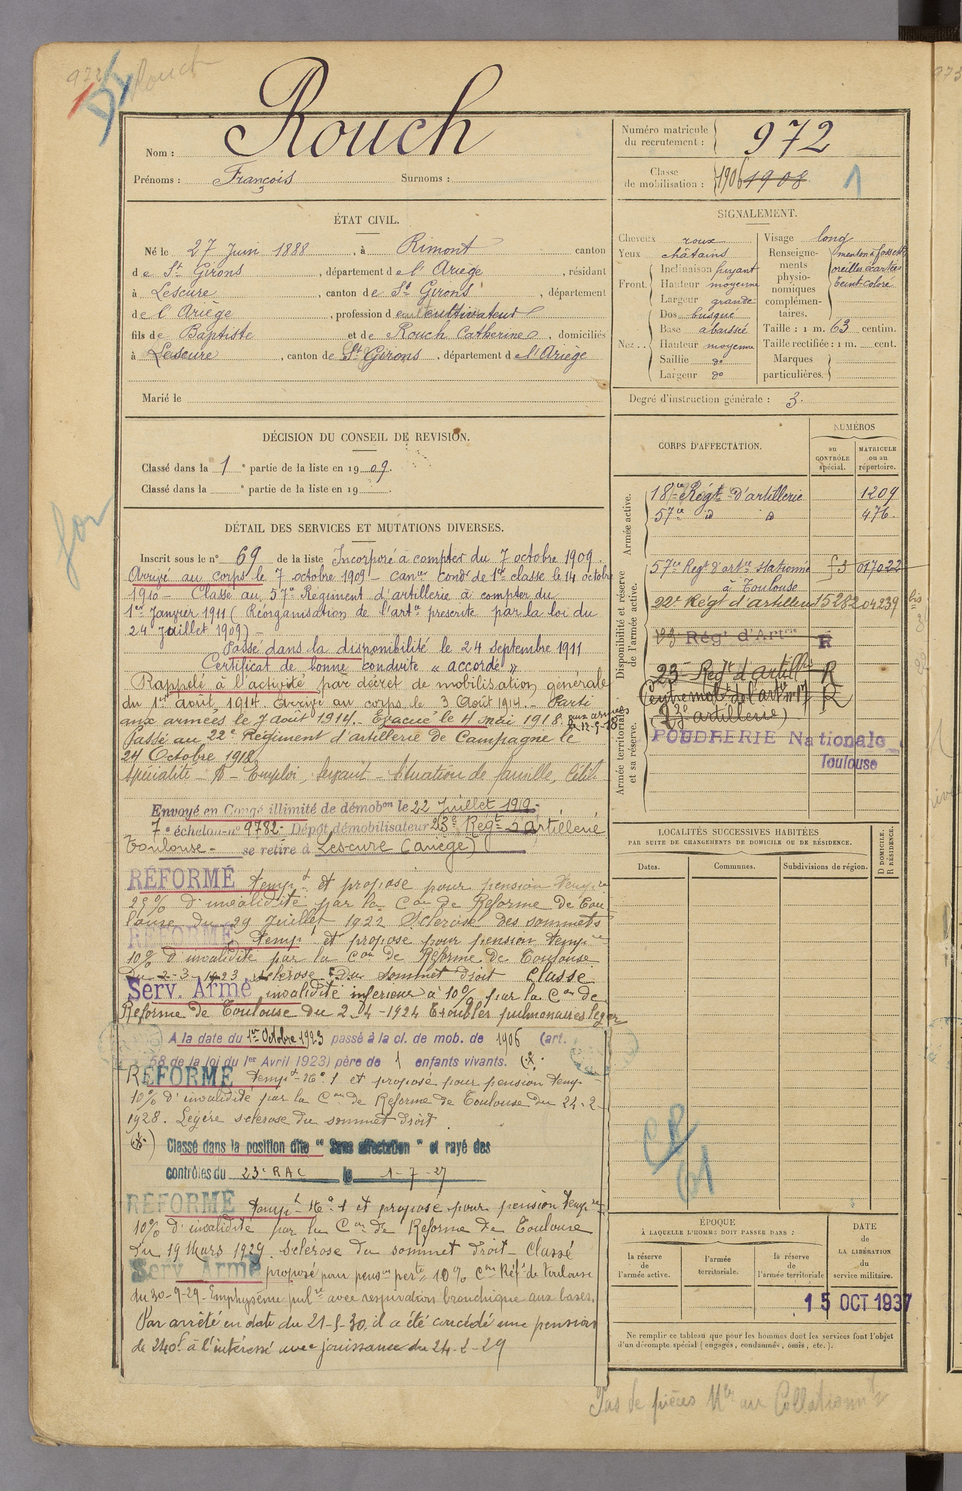 972
Rouch
Nom : Rouch
Prénoms : François Surnoms :
Numéro matricule du recrutement : 972
Classe de mobilisation : 1906 1908
1
ÉTAT CIVIL.
Né le 27 Juin 1888, à Rimont canton
de St Girons, département de l'Ariège, résidant
à Lescure, canton de St Girons, département
de l'Ariège, profession de cultivateur
fils de Baptiste et de Rouch Catherine, domiciliés
à Lescure, canton de St Girons, département de l'Ariège
Marié le
DÉCISION DU CONSEIL DE REVISION.
Classé dans la 1e partie de la liste en 1909.
Classé dans la e partie de la liste en 19
DÉTAIL DES SERVICES ET MUTATIONS DIVERSES.
Inscrit sous le n° 69 de la liste Incorporé à compter du 7 octobre 1909.
Arrivé au corps le 7 octobre 1909 - canr condr de 1re classe le 14 octobre
1910 - Classé au 57e Régiment d'artillerie à compter du
1er Janvier 1911 (Réorganisation de l'artie prescrite par la loi du
24 Juillet 1909) -
Passé dans la disponibilité le 24 septembre 1911
Certificat de bonne conduite « accordé »
Rappelé à l'activité par décret de mobilisation générale
du 1er août 1914. Arrivé au corps le 3 Août 1914. - Parti
aux armées le 7 août 1914. Evacué le 4 mai 1918. aux armées
Passé au 22e Régiment d'artillerie de Campagne le
24 Octobre 1918
Spécialité - A - Emploi, Servant - Situation de famille, Célib
Envoyé en Congé illimité de démobon le 22 Juillet 1919 -
7e échelon - n° 9782 - Dépôt démobilisateur 23e Régt d'artillerie
Toulouse - se retire à Lescure (ariège)
RÉFORMÉ tempt et proposé pour pension tempre
25% d'invalidité par la Con de Réforme de Toulouse
du 29 Juillet 1922 Sclérose des sommets
RÉFORMÉ tempt et proposé pour pension tempre
10% d'invalidité par la Con de Réforme de Toulouse
du 2-3-1923 sclérose du sommet droit Classé
Serv. Armé invalidité inférieure à 10% par la Con de
Réforme de Toulouse du 2-4-1924 Troubles pulmonaires légers
A la date du 1er Octobre 1923 passé à la cl. de mob. de 1906 (art.
58 de la loi du 1er Avril 1923) père de 1 enfants vivants.
RÉFORMÉ tempt n° 1 et proposé pour pension temp.
10% d'invalidité par la Con de Réforme de Toulouse du 24-2-
1928. Légère sclérose du sommet droit.
Classé dans la position dite " Sans affectation " et rayé des
contrôles du 23e RAC le 1-7-27
RÉFORMÉ tempt n° 1 et proposé pour pension tempre
10% d'invalidité par la Con de Réforme de Toulouse
du 19 Mars 1929. Sclérose du sommet droit - Classé
Serv. Armé proposé pour penson perte 10% Con Réfe de Toulouse
du 30-9-29 - Emphysème pulre avec respiration bronchique aux bases.
Par arrêté en date du 21-5-30, il a été concédé une pension
de 240f à l'intéressé avec jouissance du 24-2-29
SIGNALEMENT.
Cheveux roux
Yeux châtains
Front. Inclinaison fuyant
Hauteur moyenne
Largeur grande
Nez.. Dos busqué
Base abaissé
Hauteur moyenne
Saillie do
Largeur do
Visage long
Renseignements physionomiques complémentaires. menton à fossette
oreilles écartées
teint coloré
Taille : 1 m. 63 centim.
Taille rectifiée : 1 m. cent.
Marques particulières.
Degré d'instruction générale : 3.
CORPS D'AFFECTATION.
NUMÉROS
au CONTRÔLE spécial.
MATRICULE ou au répertoire.
Armée active.
18e Régt d'artillerie 1209
57e d d 476
Disponibilité et réserve de l'armée active.
57e Régt d'artie stationné à Toulouse f 3 017022
22e Régt d'artillerie 15282 04239
Rég. d'Artie R
23e Régt d'artillie R
(Centre mobr de l'artie n° 17 R
23e artillerie)
Armée territoriale et sa réserve.
POUDRERIE Nationale
Toulouse
LOCALITÉS SUCCESSIVES HABITÉES
PAR SUITE DE CHANGEMENTS DE DOMICILE OU DE RÉSIDENCE.
Dates.
Communes.
Subdivisions de région.
D DOMICILE.
R RÉSIDENCE.
ÉPOQUE
À LAQUELLE L'HOMME DOIT PASSER DANS :
la réserve de l'armée active.
l'armée territoriale.
la réserve de l'armée territoriale
DATE de LA LIBÉRATION du service militaire.
15 OCT 1937
Ne remplir ce tableau que pour les hommes dont les services font l'objet
d'un décompte spécial (engagés, condamnés, omis, etc.).
Pas de pièces Mles au Collationnt